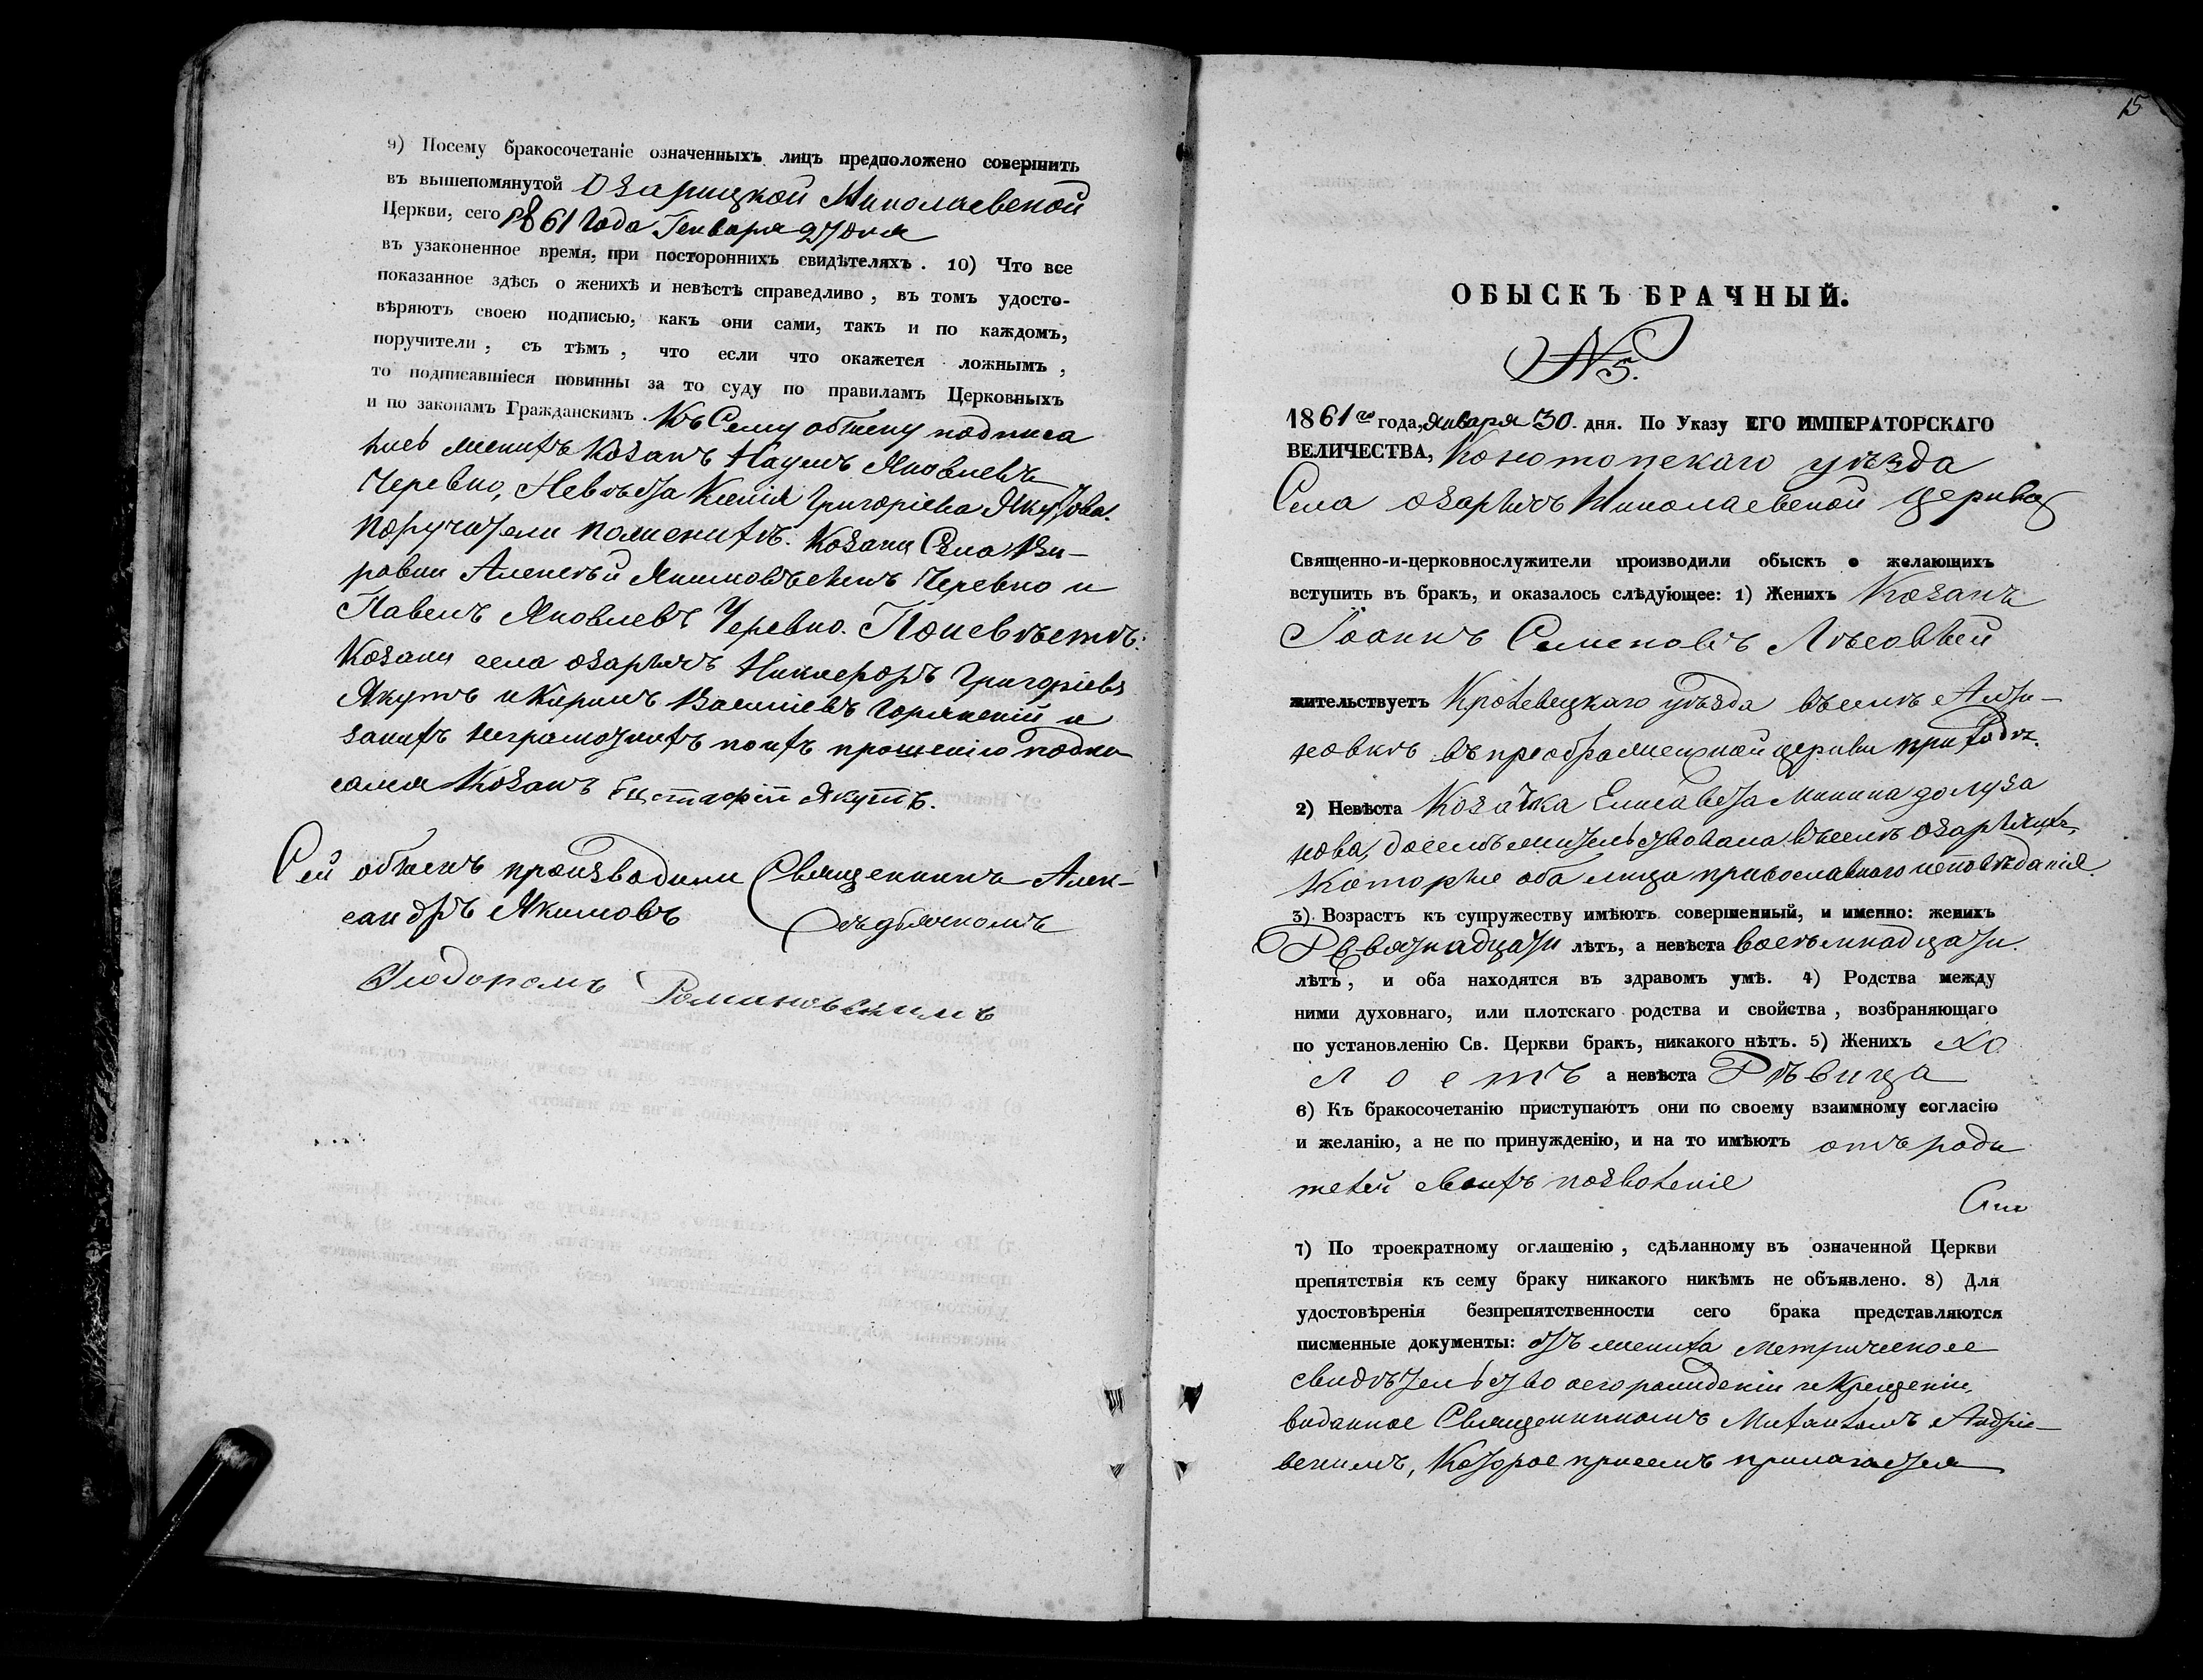 9) Посему бракосочетаніе означенныхъ лицъ предположено совершить
въ вышепомянутой Озарицкой Николаевской
Церкви, сего 1861 Года Генваря 27 дня
въ узаконенное время, при постороннихъ свидѣтеляхъ. 10) Что все
показанное здѣсь о женихѣ и невѣстѣ справедливо, въ томъ удосто-
вѣряютъ своею подписью, какъ они сами, такъ и по каждомъ,
поручители, съ тѣмъ, что если что окажется ложнымъ,
то подписавшіеся повинны за то суду по правиламъ Церковныхъ
и по законамъ Гражданскимъ. Къ Сему обыску подписа
лись женихъ Козакъ Наумъ Яковлевъ
Черевко, Невѣста Ксенія Григоріева Якутова.
Поручители по женихѣ: Козаки Села
Алексѣй Черевко и
Павелъ Яковлевъ Черевко. По невѣстѣ:
Козаки села Озаричъ Никифоръ Григоріевъ
Якутъ и Карпъ Василіевъ и
за нихъ неграмотныхъ по ихъ прошенію подпи
сался Козакъ Евстафій Якутъ.
Сей обыскъ производили Священникъ Алек-
сандръ Якимовъ Съ дьячкомъ
Ѳеодоромъ Романовскимъ
15
ОБЫСКЪ БРАЧНЫЙ.
№ 5.
1861го года, Января 30. дня. По Указу ЕГО ИМПЕРАТОРСКАГО
ВЕЛИЧЕСТВА, Конотопскаго уѣзда
Села Озаричъ Николаевской церкви
Священно-и-церковнослужители производили обыскъ о желающихъ
вступить въ бракъ, и оказалось слѣдующее: 1) Женихъ Козакъ
Іоаннъ Семеновъ Лѣсовый
жительствуетъ Кролевецкаго уѣзда въ селѣ Алти-
новкѣ въ преображенской церкви приходѣ.
2) Невѣста Козачка Елисавета Минина
нова, доселѣ жительствовала въ селѣ Озаричахъ,
Которые оба лица православного исповѣданія.
3) Возрастъ къ супружеству имѣютъ совершенный, и именно: женихъ
Девятнадцати лѣтъ, а невѣста восемьнадцати.
лѣтъ, и оба находятся въ здравомъ умѣ. 4) Родства между
ними духовнаго, или плотскаго родства и свойства, возбраняющаго
по установленію Св. Церкви бракъ, никакого нѣтъ. 5) Женихъ хо
лостъ а невѣста Дѣвица
6) Къ бракосочетанію приступаютъ они по своему взаимному согласію
и желанію, а не по принужденію, и на то имѣютъ отъ роди
телей своихъ позволеніе
7) По троекратному оглашенію, сдѣланному въ означенной Церкви
препятствія къ сему браку никакого никѣмъ не объявлено. 8) Для
удостовѣренія безпрепятственности сего брака представляются
писменные документы: отъ жениха Метрическое
свидѣтельство о его рожденіи и Крещеніи,
виданное Священникомъ Михаиломъ Андріе-
вскимъ, Которое при семъ прилагается